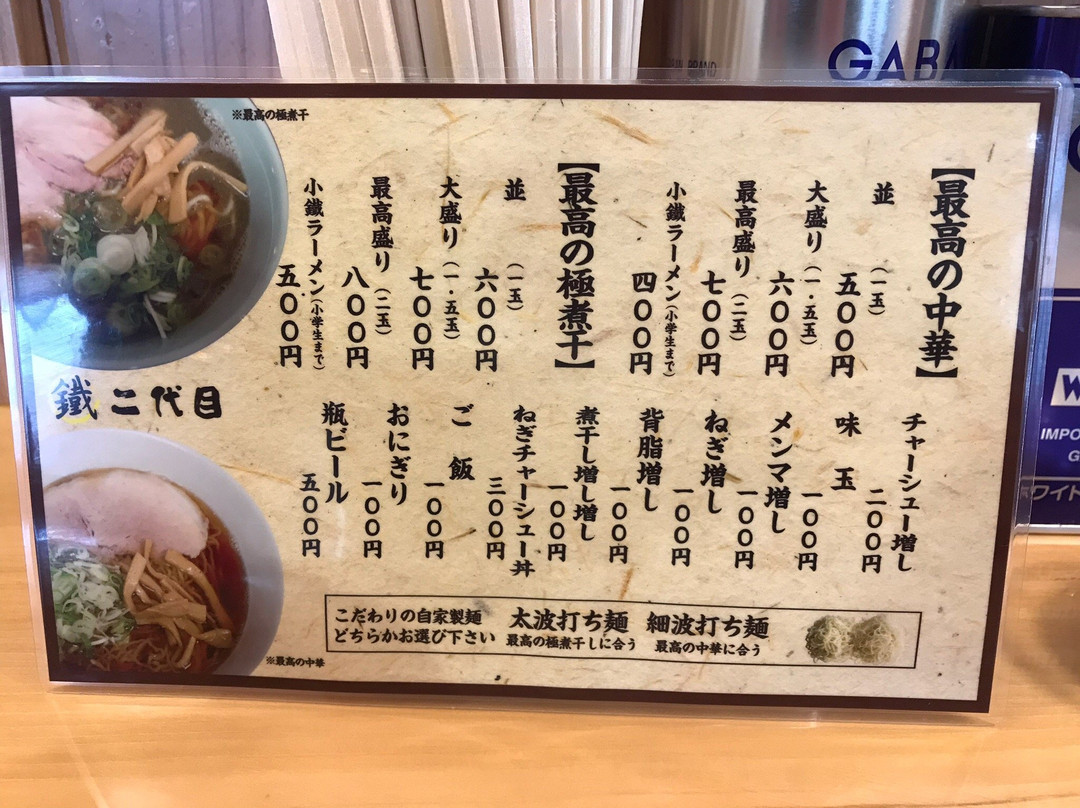 【最高の中華】
並(一玉)五〇〇円
大盛り(一・五玉)六〇〇円
最高盛り(二玉)七〇〇円
小鐵ラーメン(小学生まで)四〇〇円
【最高の極煮干】
並(一玉)六〇〇円
大盛り(一・五玉)七〇〇円
最高盛り(二玉)八〇〇円
小鐵ラーメン(小学生まで)五〇〇円
チャーシュー増し 二〇〇円
味玉 一〇〇円
メンマ増し 一〇〇円
ねぎ増し 一〇〇円
背脂増し 一〇〇円
煮干し増し増し 一〇〇円
ねぎチャーシュー丼 三〇〇円
ご飯 一〇〇円
おにぎり 一〇〇円
瓶ビール 五〇〇円
※最高の極煮干
鐵二代目
※最高の中華
こだわりの自家製麺
どちらかお選び下さい
太波打ち麺
最高の極煮干しに合う
細波打ち麺
最高の中華に合う
GABA
BRAND
W
IMPO
G
ワイト